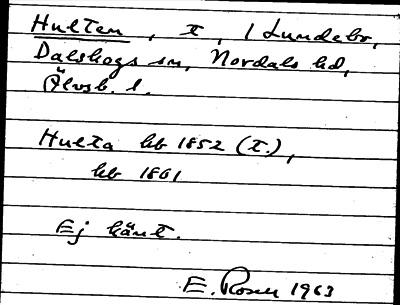 Hulten, t, / Lundebr,
Dalskogs sn, Nordals hd,
Älvsb. l.
Hulta hb 1852 (t.),
hb 1861
Ej känt.
E. Rosell 1963